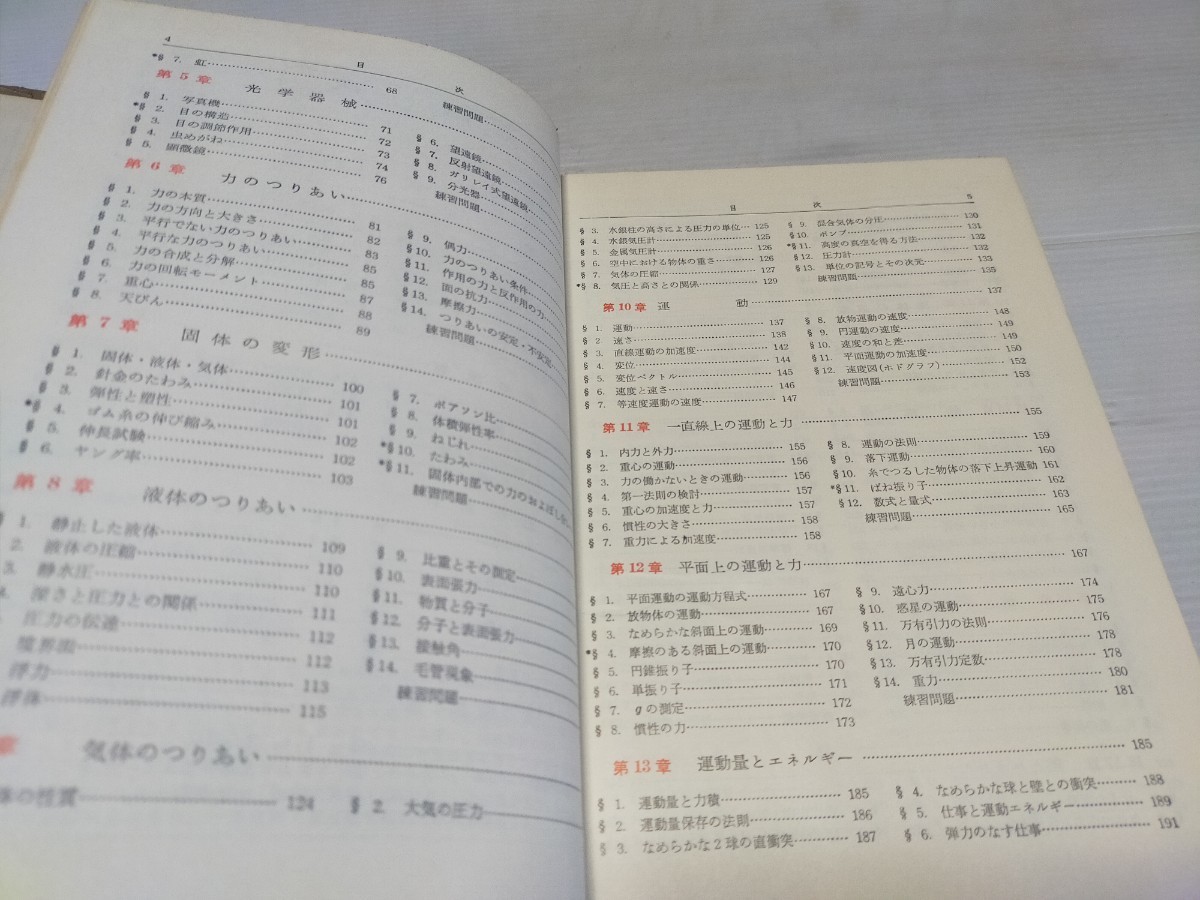 4 目次
*§ 7. 虹…… 68
練習問題……
第5章 光学器械……
§ 1. 写真機…… 71
*§ 2. 目の構造…… 72
§ 3. 目の調節作用…… 73
§ 4. 虫めがね…… 74
§ 5. 顕微鏡…… 76
§ 6. 望遠鏡……
§ 7. 反射望遠鏡……
§ 8. ガリレイ式望遠鏡……
§ 9. 分光器……
練習問題……
第6章 力のつりあい……
§ 1. 力の本質…… 81
§ 2. 力の方向と大きさ…… 82
§ 3. 平行でない力のつりあい…… 83
§ 4. 平行な力のつりあい…… 85
§ 5. 力の合成と分解…… 85
§ 6. 力の回転モーメント…… 87
§ 7. 重心…… 88
§ 8. 天びん…… 89
§ 9. 偶力……
§10. 力のつりあい条件……
§11. 作用の力と反作用の力
§12. 面の抗力……
§13. 摩擦力……
§14. つりあいの安定・不安定
練習問題……
第7章 固体の変形……
§ 1. 固体・液体・気体…… 100
§ 2. 針金のたわみ…… 101
§ 3. 弾性と塑性…… 101
*§ 4. ゴム糸の伸び縮み…… 102
§ 5. 伸長試験…… 102
§ 6. ヤング率…… 103
§ 7. ポアソン比……
§ 8. 体積弾性率……
§ 9. ねじれ……
*§10. たわみ……
*§11. 固体内部での力のおよぼし
練習問題……
第8章 液体のつりあい……
§ 1. 静止した液体…… 109
2. 液体の圧縮…… 110
3. 静水圧…… 110
4. 深さと圧力との関係…… 111
圧力の伝達…… 112
境界面…… 112
浮力…… 113
浮体…… 115
§ 9. 比重とその測定……
§10. 表面張力……
§11. 物質と分子……
§12. 分子と表面張力……
§13. 接触角……
§14. 毛管現象……
練習問題……
章 気体のつりあい……
体の性質…… 124
§ 2. 大気の圧力……
目次 5
§ 3. 水銀柱の高さによる圧力の単位… 125
§ 4. 水銀気圧計…… 125
§ 5. 金属気圧計…… 126
§ 6. 空中における物体の重さ…… 126
§ 7. 気体の圧縮…… 127
*§ 8. 気圧と高さとの関係…… 129
§ 9. 混合気体の分圧…… 130
§10. ポンプ…… 131
*§11. 高度の真空を得る方法…… 132
§12. 圧力計…… 132
§13. 単位の記号とその次元…… 133
練習問題…… 135
第10章 運動…… 137
§ 1. 運動…… 137
§ 2 速さ…… 138
§ 3. 直線運動の加速度…… 142
§ 4. 変位…… 144
§ 5. 変位ベクトル…… 145
§ 6. 速度と速さ…… 146
§ 7. 等速度運動の速度…… 147
§ 8. 放物運動の速度…… 148
§ 9. 円運動の速度…… 149
§10. 速度の和と差…… 149
§11. 平面運動の加速度…… 150
§12. 速度図(ホドグラフ)…… 152
練習問題…… 153
第11章 一直線上の運動と力…… 155
§ 1. 内力と外力…… 155
§ 2. 重心の運動…… 156
§ 3. 力の働かないときの運動…… 156
§ 4. 第一法則の検討…… 157
§ 5. 重心の加速度と力…… 157
§ 6. 慣性の大きさ…… 158
§ 7. 重力による加速度…… 158
§ 8. 運動の法則…… 159
§ 9. 落下運動…… 160
§10. 糸でつるした物体の落下上昇運動 161
*§11. ばね振り子…… 162
§12. 数式と量式…… 163
練習問題…… 165
第12章 平面上の運動と力…… 167
§ 1. 平面運動の運動方程式…… 167
§ 2. 放物体の運動…… 167
§ 3. なめらかな斜面上の運動…… 169
*§ 4. 摩擦のある斜面上の運動…… 170
§ 5. 円錐振り子…… 170
§ 6. 単振り子…… 171
§ 7. gの測定…… 172
§ 8. 慣性の力…… 173
§ 9. 遠心力…… 174
§10. 惑星の運動…… 175
§11. 万有引力の法則…… 176
§12. 月の運動…… 178
§13. 万有引力定数…… 178
§14. 重力…… 180
練習問題…… 181
第13章 運動量とエネルギー…… 185
§ 1. 運動量と力積…… 185
§ 2. 運動量保存の法則…… 186
§ 3. なめらかな2球の直衝突…… 187
§ 4. なめらかな球と壁との衝突…… 188
§ 5. 仕事と運動エネルギー…… 189
§ 6. 弾力のなす仕事…… 191